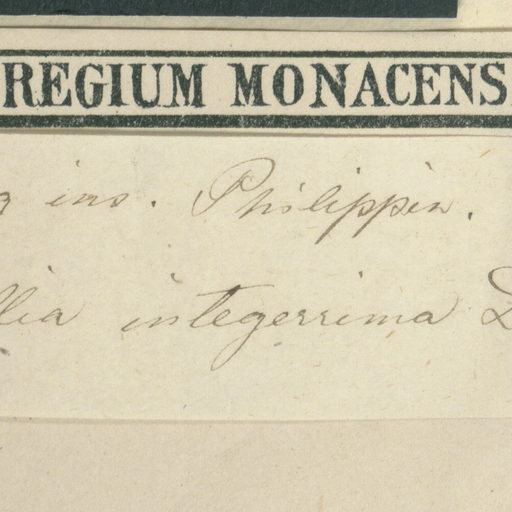 REGIUM MONACENS
ins. Philippin.
llia integerrima D